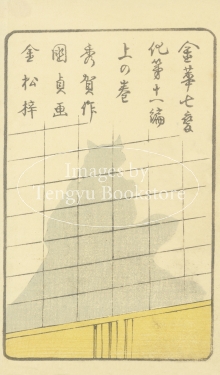 金華七変
化第十一編
上の巻
秀賀作
國貞画
金松梓
Images by
Tengyu Bookstore